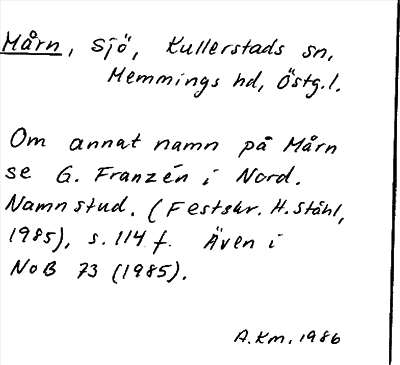 Mårn, sjö, Kullerstads sn,
Memmings hd, Östg.l.
Om annat namn på Mårn
se G. Franzén i Nord.
Namnstud. (Festskr. H. Ståhl,
1985), s. 114 f. Även i
NoB 73 (1985).
A.Km. 1986